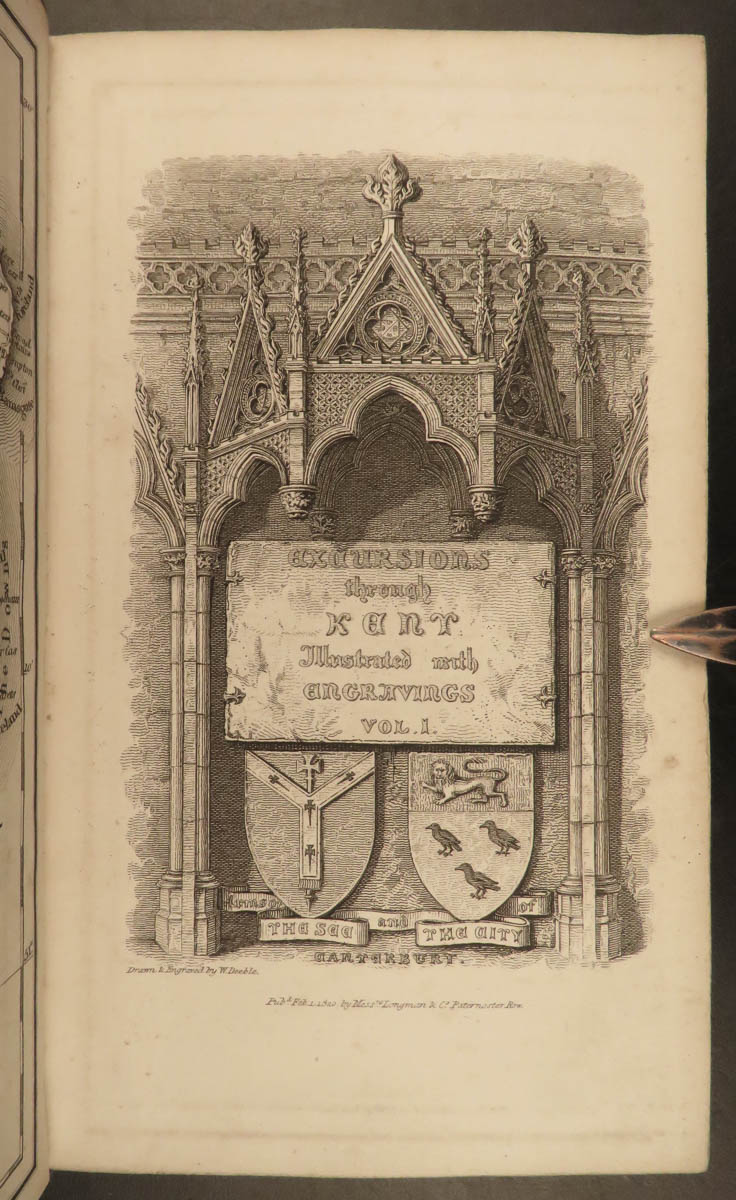 EXCURSIONS
through
KENT
Illustrated with
ENGRAVINGS
VOL. I.
Arms of
THE SEE
and
THE CITY
of
CANTERBURY.
Drawn & Engraved by W. Deeble.
Pubd. Feb. 1, 1820, by Messrs. Longman & Co. Paternoster Row.